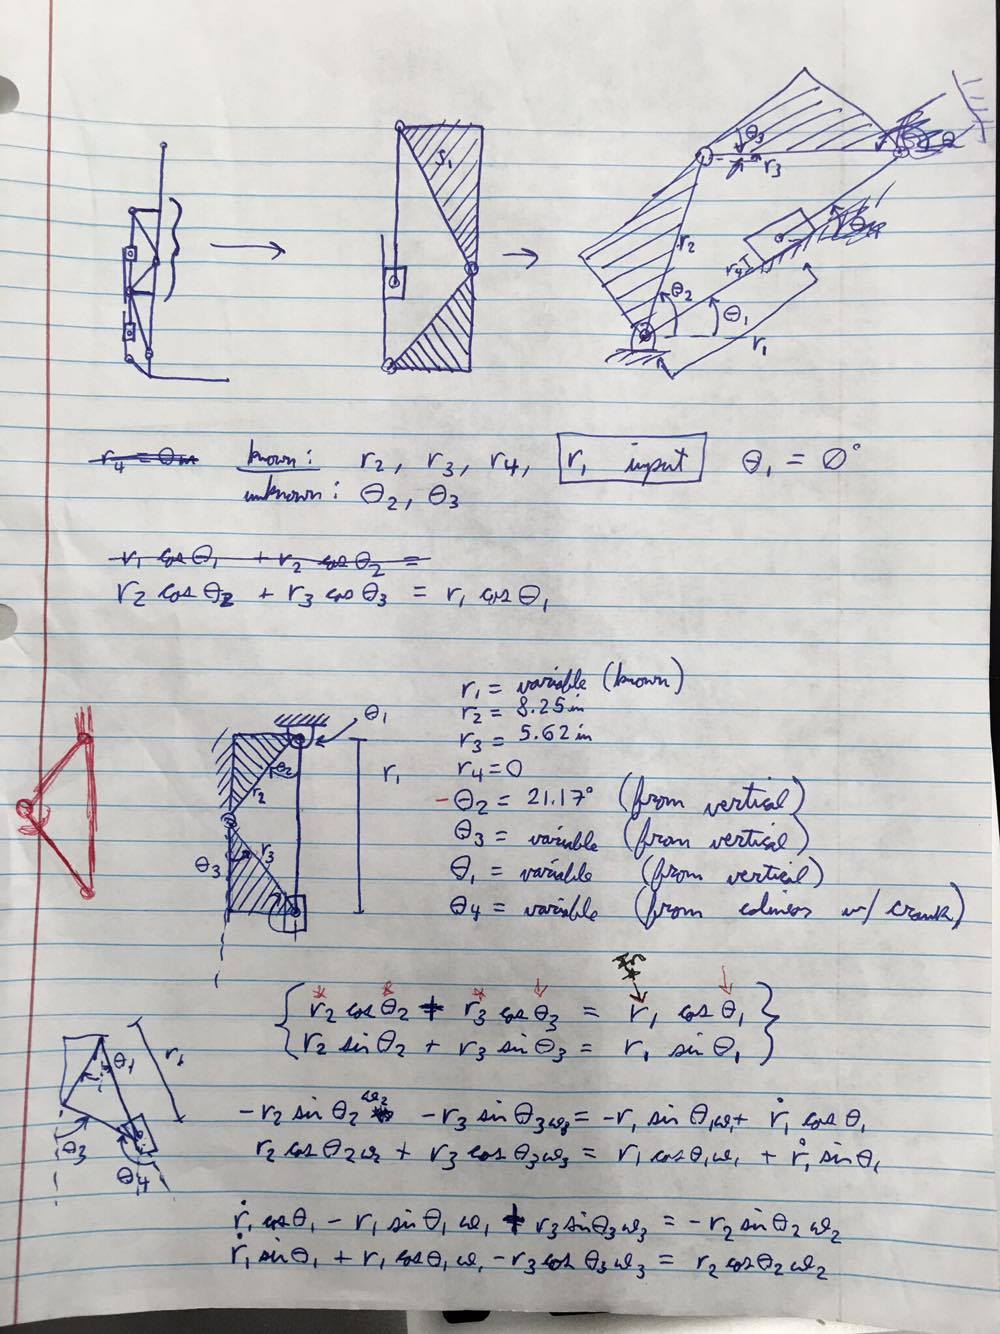 S₁
θ₃
r₃
r₂
r₄
θ₂
θ₁
r₁
r₄ = 0 in known: r₂, r₃, r₄, r₁ input θ₁ = 0°
unknown: θ₂, θ₃
r₁ cos θ₁ + r₂ cos θ₂ =
r₂ cos θ₂ + r₃ cos θ₃ = r₁ cos θ₁
r₁ = variable (known)
r₂ = 8.25 in
r₃ = 5.62 in
r₄ = 0
-θ₂ = 21.17° (from vertical)
θ₃ = variable (from vertical)
θ₁ = variable (from vertical)
θ₄ = variable (from colinear w/ crank)
θ₁
θ₂
r₁
r₂
r₃
θ₃
r₂ cos θ₂ + r₃ cos θ₃ = r₁ cos θ₁
r₂ sin θ₂ + r₃ sin θ₃ = r₁ sin θ₁
θ₁
r₁
θ₃
θ₄
-r₂ sin θ₂ ω₂ - r₃ sin θ₃ ω₃ = -r₁ sin θ₁ ω₁ + ṙ₁ cos θ₁
r₂ cos θ₂ ω₂ + r₃ cos θ₃ ω₃ = r₁ cos θ₁ ω₁ + ṙ₁ sin θ₁
ṙ₁ cos θ₁ - r₁ sin θ₁ ω₁ + r₃ sin θ₃ ω₃ = -r₂ sin θ₂ ω₂
ṙ₁ sin θ₁ + r₁ cos θ₁ ω₁ - r₃ cos θ₃ ω₃ = r₂ cos θ₂ ω₂